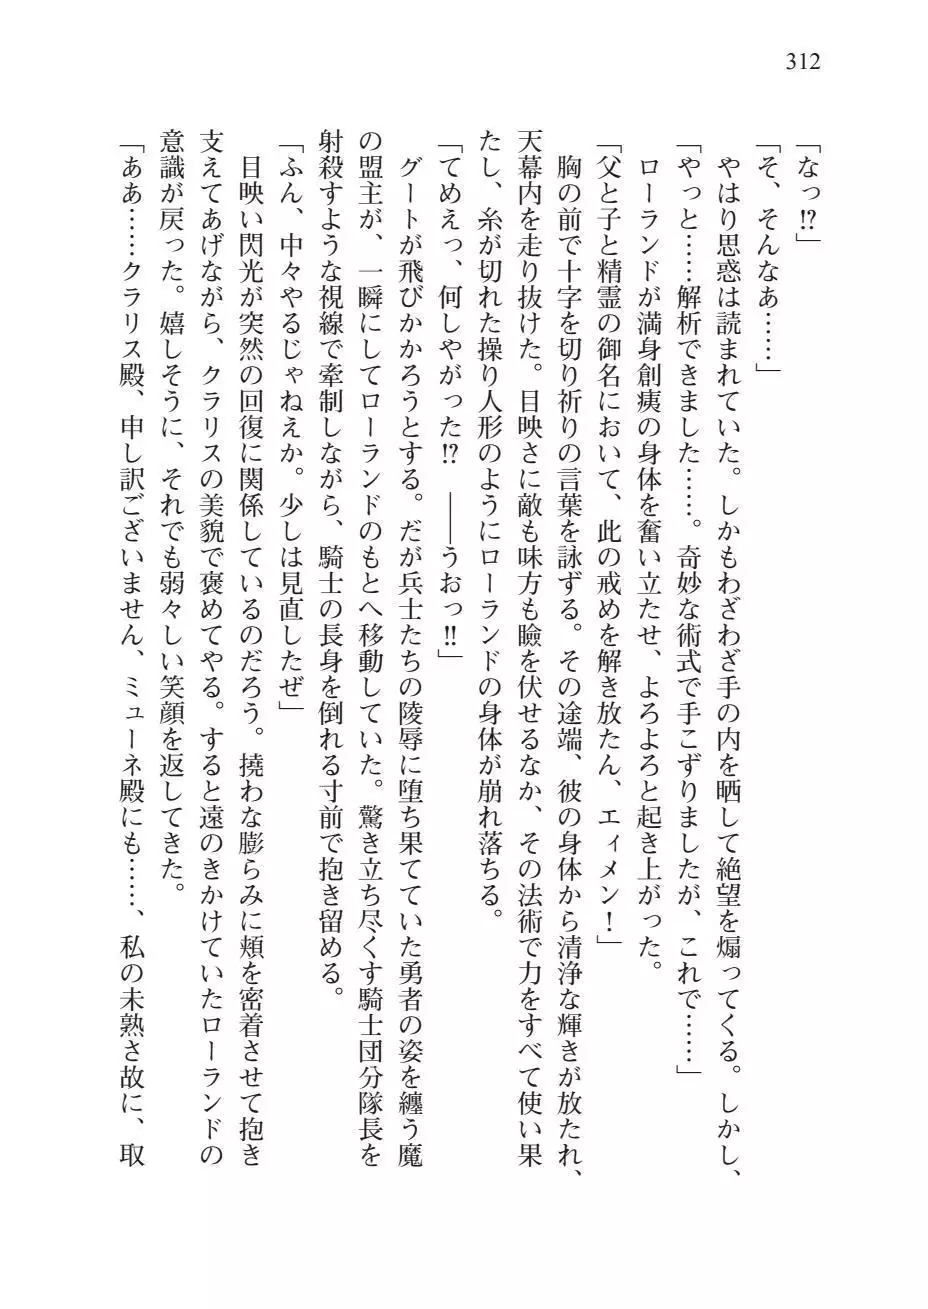 312
「なっ!?」
「そ、そんなあ……」
　やはり思惑は読まれていた。しかもわざわざ手の内を晒して絶望を煽ってくる。しかし、
「やっと……解析できました……。奇妙な術式で手こずりましたが、これで……」
　ローランドが満身創痍の身体を奮い立たせ、よろよろと起き上がった。
「父と子と精霊の御名において、此の戒めを解き放たん、エィメン！」
　胸の前で十字を切り祈りの言葉を詠ずる。その途端、彼の身体から清浄な輝きが放たれ、
天幕内を走り抜けた。目映さに敵も味方も瞼を伏せるなか、その法術で力をすべて使い果
たし、糸が切れた操り人形のようにローランドの身体が崩れ落ちる。
「てめえっ、何しやがった!?　――うおっ!!」
　グートが飛びかかろうとする。だが兵士たちの陵辱に堕ち果てていた勇者の姿を纏う魔
の盟主が、一瞬にしてローランドのもとへ移動していた。驚き立ち尽くす騎士団分隊長を
射殺すような視線で牽制しながら、騎士の長身を倒れる寸前で抱き留める。
「ふん、中々やるじゃねえか。少しは見直したぜ」
　目映い閃光が突然の回復に関係しているのだろう。撓わな膨らみに頬を密着させて抱き
支えてあげながら、クラリスの美貌で褒めてやる。すると遠のきかけていたローランドの
意識が戻った。嬉しそうに、それでも弱々しい笑顔を返してきた。
「ああ……クラリス殿、申し訳ございません、ミューネ殿にも……、私の未熟さ故に、取